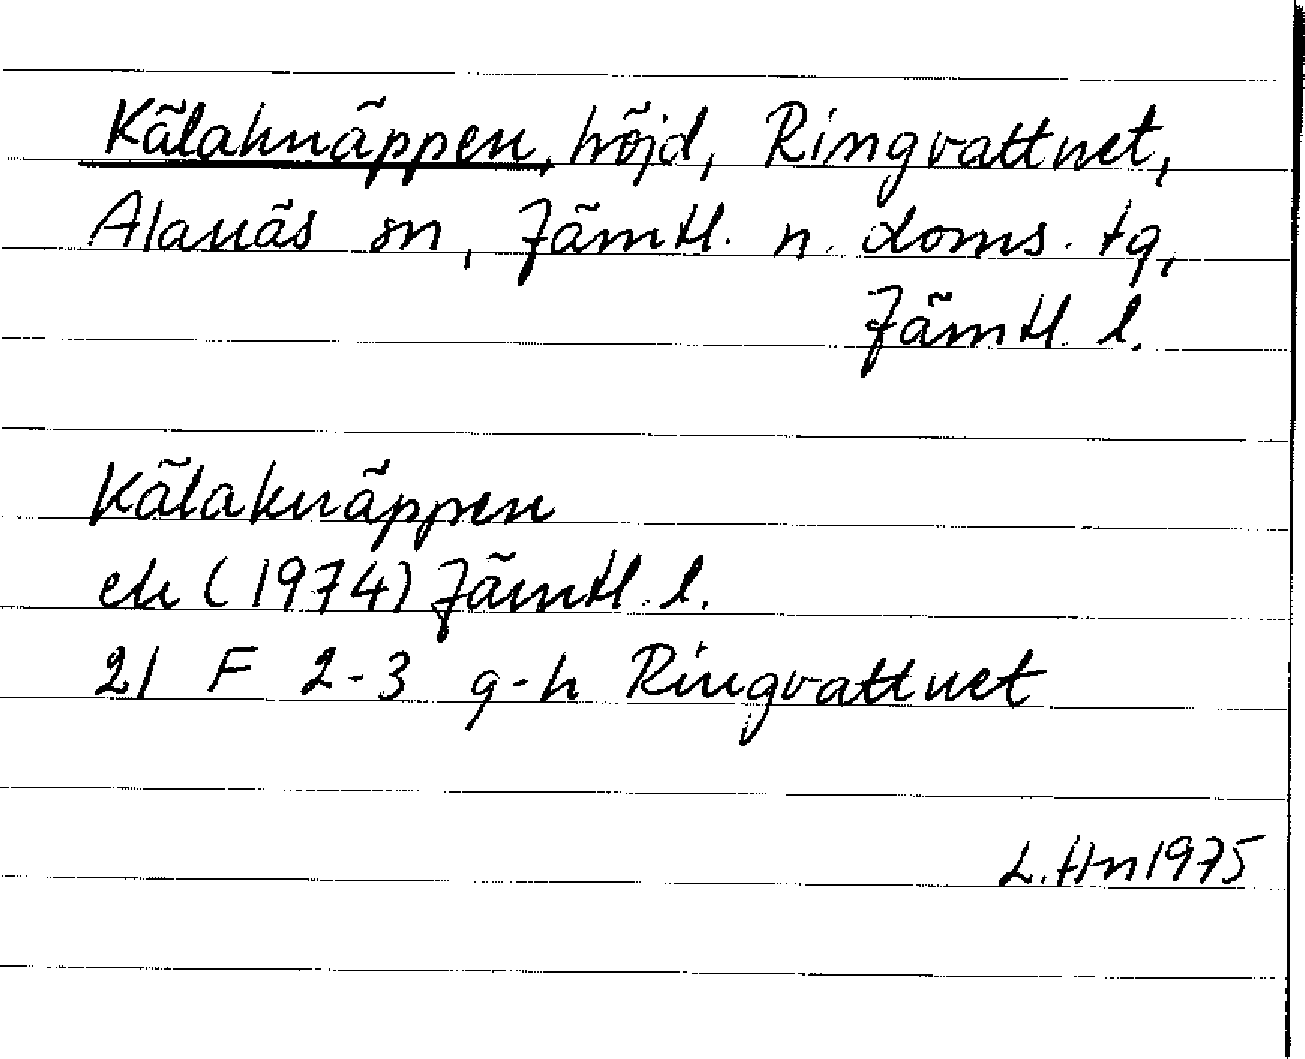 Kälaknäppen, höjd, Ringvattnet,
Alanäs sn, Jämtl. n. doms. tg,
Jämtl. l.
Kälaknäppen
ek (1974) Jämtl. l.
21 F 2-3 g-h Ringvattnet
L. Hn 1975